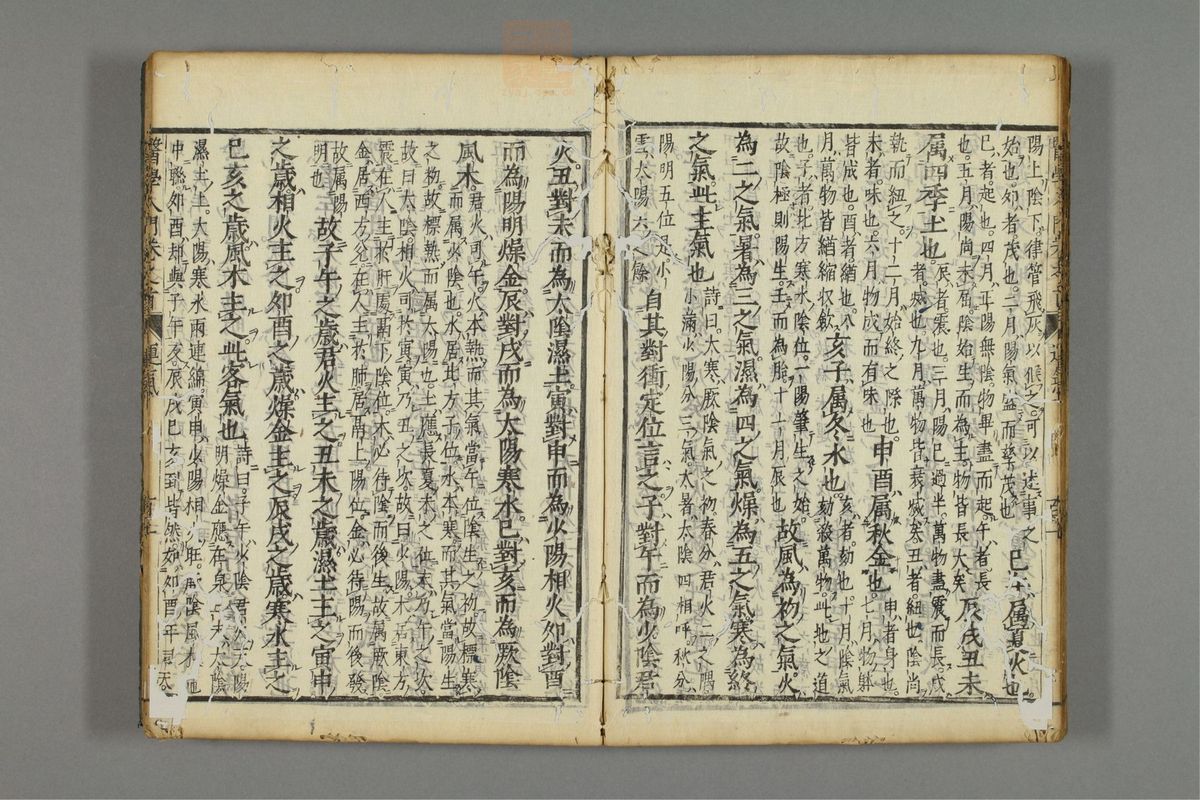 陽上陰下律管飛灰以候之可以述事之
始也卯者茂也二月陽氣盛而孳茂也
巳午属夏火也
巳者起也四月正陽無陰物畢盡而起午者長
也五月陽尚未屈陰始生而為主物皆長大矣
辰戌丑未
属四季土也
辰者震也三月陽已過半萬物盡震而長戌
者滅也九月萬物皆衰滅矣丑者紐也陰尚
執而紐之十二月始終之際也
未者味也六月物成而有味也
申酉属秋金也
申者身也七月物体
皆成也酉者緧也八
月萬物皆緧縮収歛
亥子属冬水也
亥者劾也十月陰氣
劾殺萬物此地之道
也子者北方寒水陰位一陽肇生之始
故陰極則陽生壬而為胎十一月辰也
故風為初之氣火
為二之氣暑為三之氣濕為四之氣燥為五之氣寒為終
之氣此主氣也
詩曰大寒厥陰氣之初春分君火二之隅
小滿少陽分三氣大暑太陰四相呼秋分
陽明五位是小
雪太陽六之餘
自其對衝定位言之子對午而為少陰君
火丑對未而為太陰濕土寅對申而為少陽相火卯對酉
而為陽明燥金辰對戌而為太陽寒水巳對亥而為厥陰
風木
君火司午火本熱而其氣當午位陰生之初故標寒
而属少陰也水居北方子位水本寒而其氣當陽生
之初故標熱而属太陽也土應長夏未之位未乃午之次
故曰太陰相火司於寅寅乃丑之次故曰少陽木居東方
震在人主於肝居鬲下陰位木必待陰而後生故属厥陰
金居西方兌在人主於肺居鬲上陽位金必待陽而後發
故属陽
明也
故子午之歲君火主之丑未之歲濕土主之寅申
之歲相火主之卯酉之歲燥金主之辰戌之歲寒水主之
巳亥之歲風木主之此客氣也
詩曰子午少陰君火天陽
明燥金應在泉丑未太陰
濕土上太陽寒水雨連綿寅申少陽相火旺厥陰風木地
中聯卯酉却與子午反辰戌巳亥到皆然如卯酉年
醫學入門卷之首
運氣